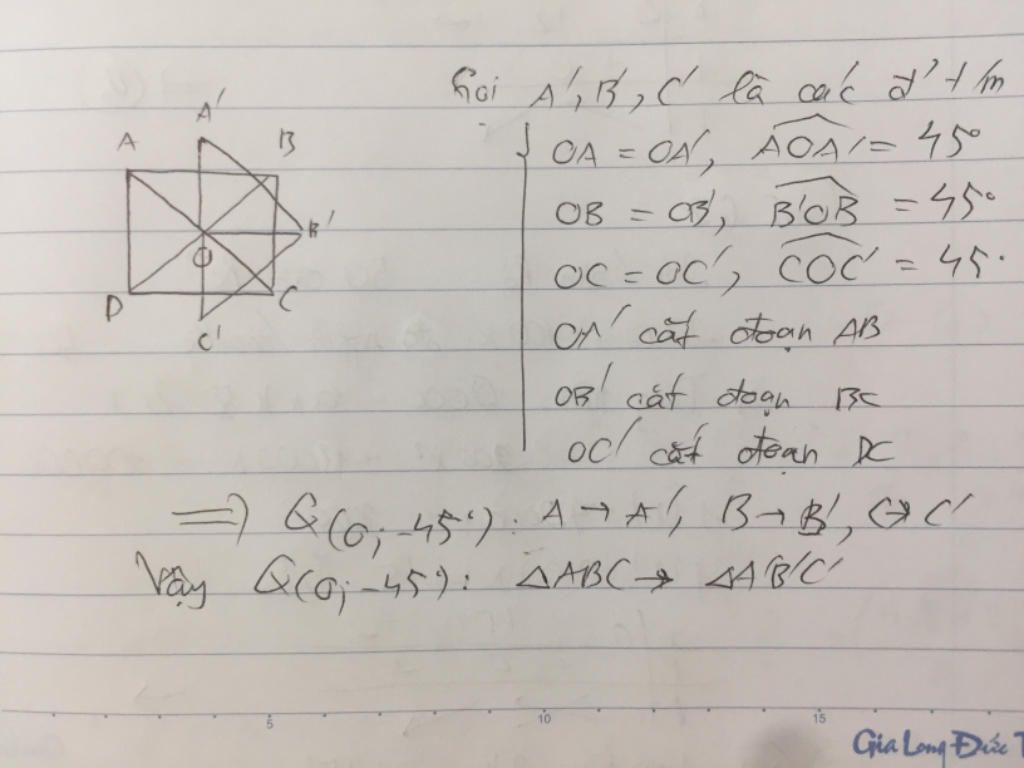 Gọi A', B', C' là các đ' t/m
A'
A
B
OA = OA', AOA' = 45°
B'
OB = OB', B'OB = 45°
O
OC = OC', COC' = 45°
D
C
C'
OA' cắt đoạn AB
OB' cắt đoạn BC
OC' cắt đoạn DC
=> Q(O; -45°): A → A', B → B', C → C'
Vậy Q(O; -45°): △ABC → △A'B'C'
5 10 15
Gia Long Đức